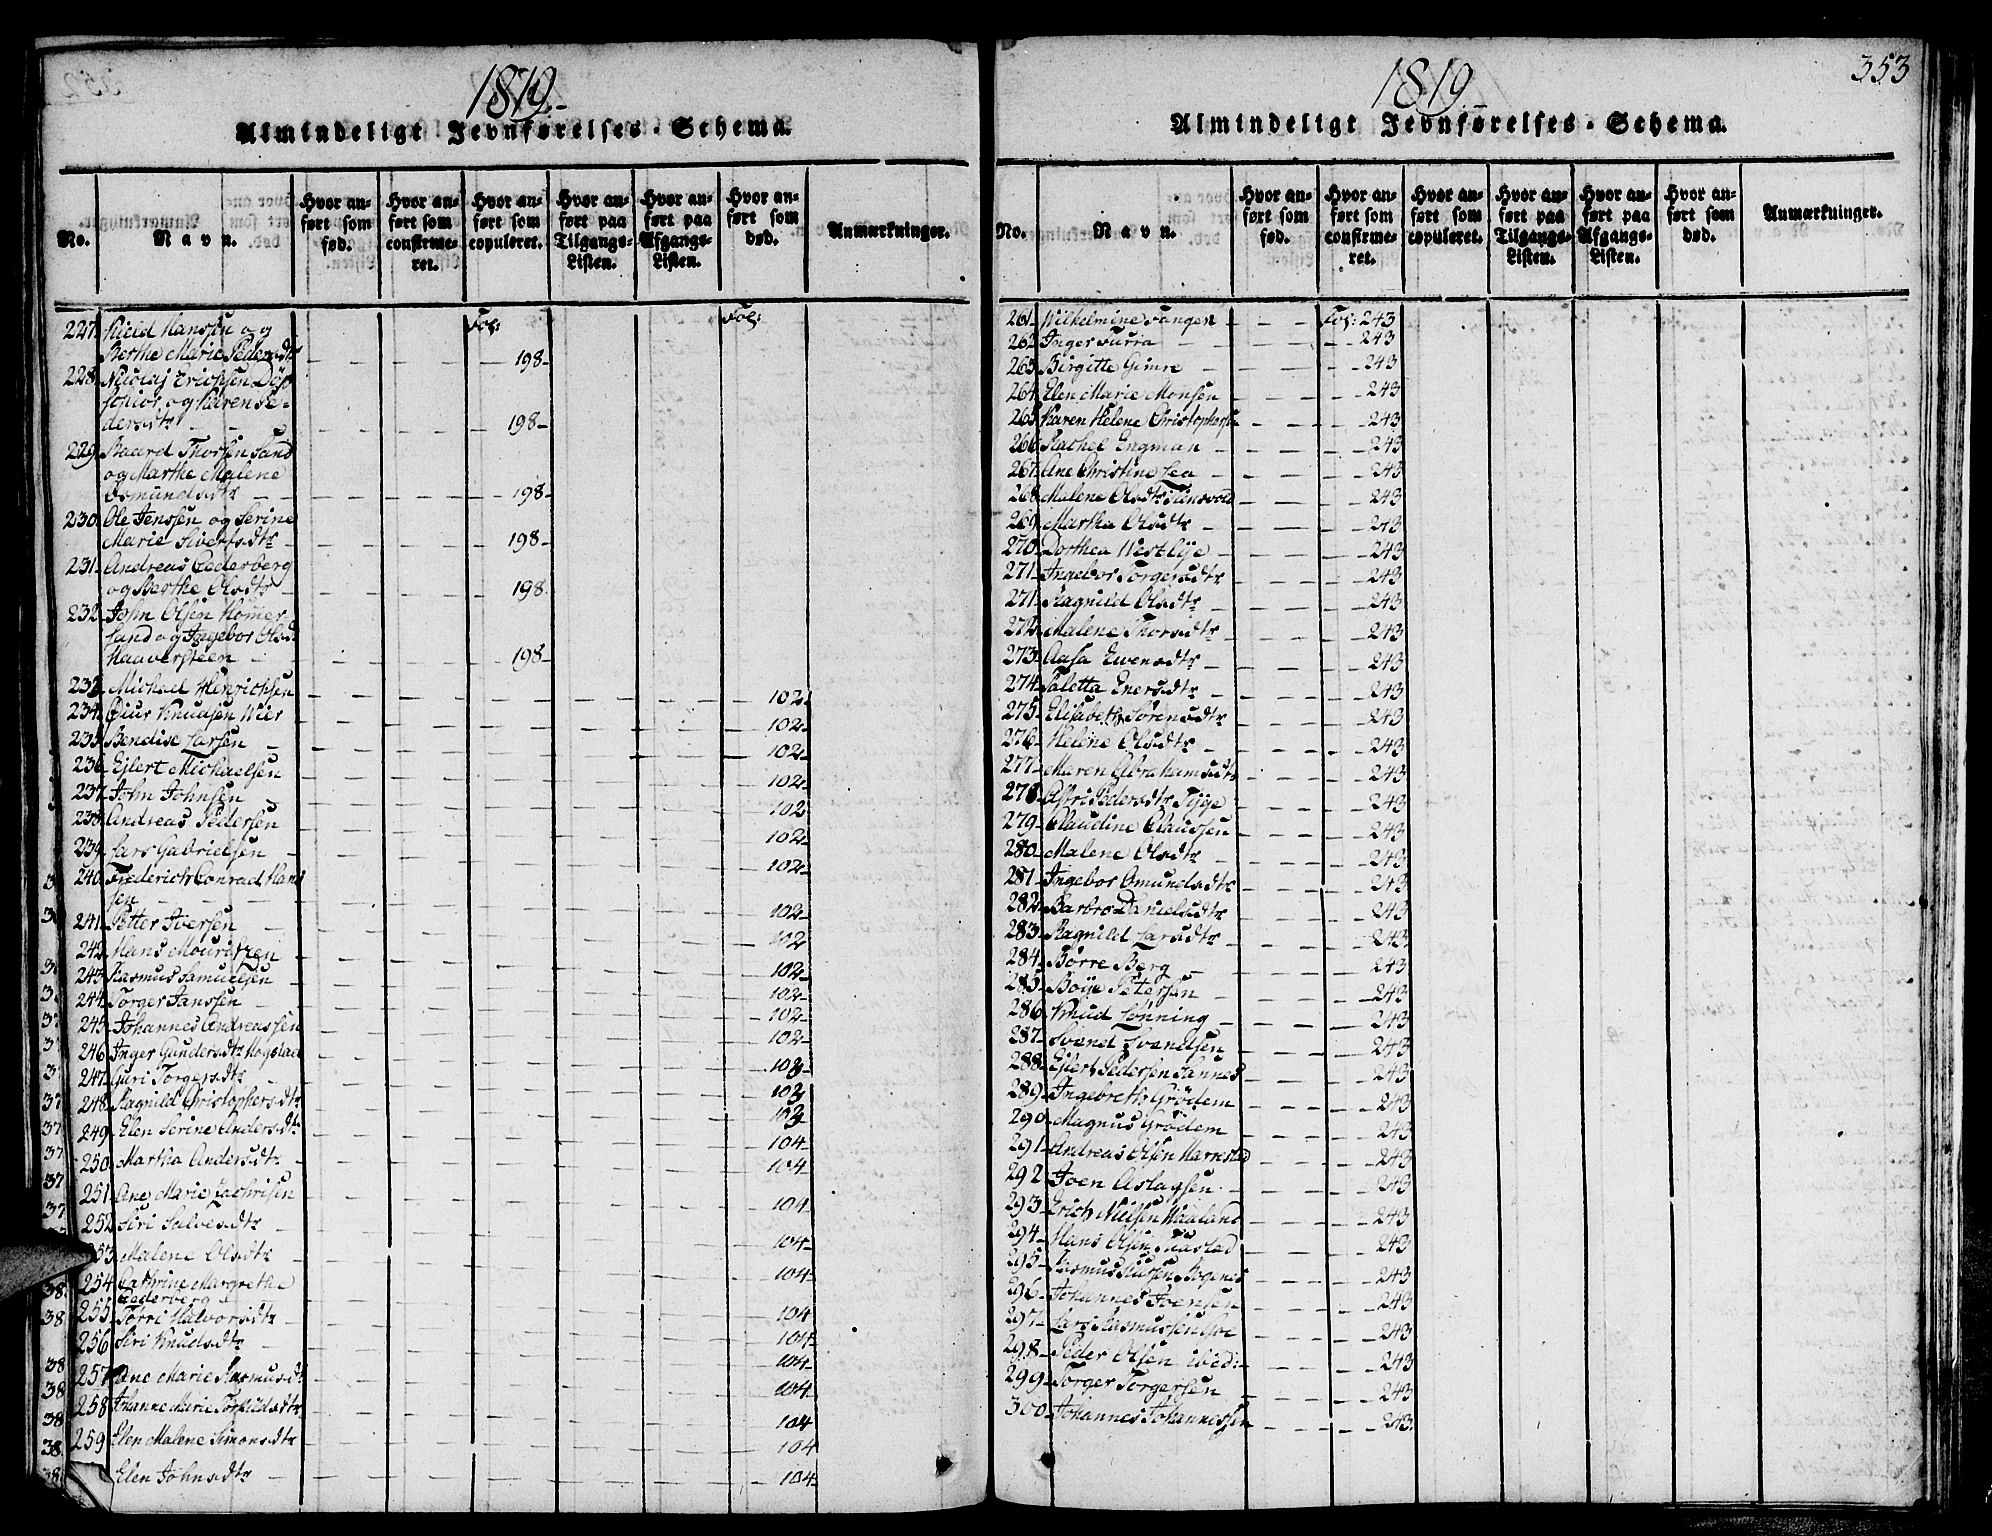 1819.
Almindeligt Jevnførelses-Schema.
No.
Navn.
Hvor anført som fød.
Hvor anført som confirmeret.
Hvor anført som copuleret.
Hvor anført paa Tilgangs-Listen.
Hvor anført paa Afgangs-Listen.
Hvor anført som død.
Anmærkninger.
Fol: Fol:
227. Kield Hanssen og
Berthe Marie Pedersdtr 198-
228. Nicolai Erichsen
og Karen Pe-
dersdtr 198-
229. Baard Thorsen Sand
og Marthe Malene
Osmundsdtr 198-
230. Ole Jenssen og Serine
Marie Sivertsdtr 198-
231. Andreas Cederberg
og Berthe Olsdtr 198.
232. John Olsen Hommer-
sand og Ingebor Olsd.
Haaversteen 198-
233. Michael Henrichsen 102
234. Knudsen Wier 102-
235. Bendise Larsen 102-
236. Ejlert Michaelsen 102-
237. John Johnsen 102
238. Andreas Pedersen 102-
239. Lars Gabrielsen 102-
240. Frederich Conrad Hans
sen 102-
241. Petter Iversen 102
242. Hans Mouritzen 102-
243. Rasmus Samuelsen 102-
244. Torger Janssen 102-
245. Johannes Andreassen 102-
246. Inger Gundersdtr Hogstad 103-
247. Guri Torgersdtr 103
248. Ragnild Christophersdtr 103
249. Elen Serine Andersdtr 104
250. Martha Andersdtr 104
251. Ane Marie Zachrisen 104
252. Siri Salvesdtr 104.
253. Malene Olsdtr 104-
254. Cathrine Margrethe
Cederberg 104
255. Torri Halvorsdtr 104-
256. Siri Knudsdtr 104-
257. Ane Marie Rasmusdt 104-
258. Johanne Marie Torkildsdtr 104
259. Elen Malene Simonsdtr 104
Elen Johnsdtr 104-
353
1819.
Almindeligt Jevnførelses-Schema.
No.
Navn.
Hvor anført som fød.
Hvor anført som confirmeret.
Hvor anført som copuleret.
Hvor anført paa Tilgangs-Listen.
Hvor anført paa Afgangs-Listen.
Hvor anført som død.
Anmærkninger.
261. Wilhelmine Fangen Fol: 243
262. Inger Surra 243
263. Birgitte Gimre 243
264. Elen Marie Monsen 243
265. Karen Helene Christophersen 243
266. Rachel Engman 243
267. Ane Christine Lea 243
268. Malene Olsdtr Tinsvold 243
269. Martha Olsdtr 243
270. Dorthea Westlye 243
271. Ingebor Torgersdtr 243
271. Ragnild Olsdtr 243
272. Malene Thorsdtr 243
273. Aasa Evensdtr 243
274. Taletta Enersdtr 243
275. Elisabeth Sørensdtr 243
276. Helene Olsdtr 243
277. Maren Abrahamsdtr 243
278. Astri Pedersdtr Tjije 243
279. Claudine Claussen 243
280. Malene Olsdtr 243
281. Ingebor Omundsdtr 243
282. Barbro Danielsdtr 243
283. Ragnild Larsdtr 243
284. Børre Berg 243
285. Boye Petersen 243
286. Knud Lønning 243
287. Svend Svendsen 243
288. Ejlert Pedersen Sannes 243
289. Ingebreth Grødem 243
290. Magnus Grødem 243
291. Andreas Olsen Harrestad 243
292. Joen Aslagsen 243
293. Erich Nielsen Haaland 243
294. Hans Olsen 243
295. Rasmus 243
296. Johannes Joensen 243
297. Lars Rasmussen Hoe 243
298. Peder Olsen ibid: 243
299. Torger Torgersen 243
300. Johannes Johannessen 243.